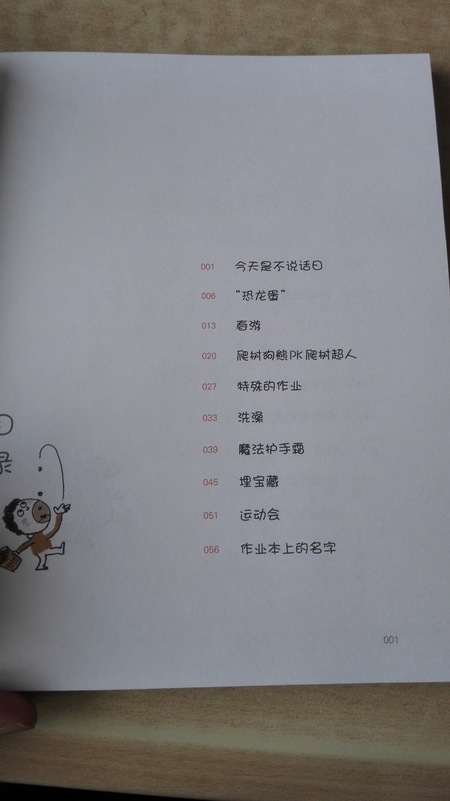 录
001 今天是不说话日
006 “恐龙蛋”
013 春游
020 爬树狗熊PK爬树超人
027 特殊的作业
033 洗澡
039 魔法护手霜
045 埋宝藏
051 运动会
056 作业本上的名字
001